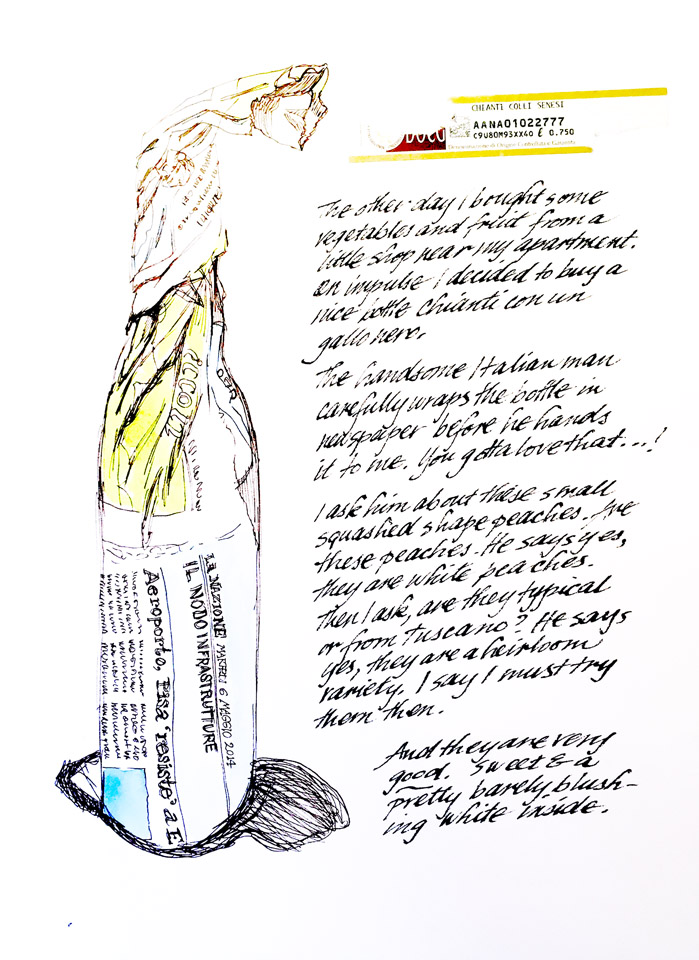 CHIANTI COLLI SENESI
AANA01022777
C9U80M93XX40 ℓ 0.750
Denominazione di Origine Controllata e Garantita
The other day I bought some
vegetables and fruit from a
little shop near my apartment.
On impulse I decided to buy a
nice bottle Chianti con un
gallo nero.
The handsome Italian man
carefully wraps the bottle in
newspaper before he hands
it to me. You gotta love that....!
I ask him about these small
squashed shape peaches. Are
these peaches. He says yes,
they are white peaches.
Then I ask, are they typical
or from Tuscano? He says
yes, they are a heirloom
variety. I say I must try
them then.
And they are very
good. Sweet & a
pretty barely blush-
ing white inside.
LA NAZIONE MARTEDI 6 MAGGIO 2014
IL NODO INFRASTRUTTURE
Aeroporto, Pisa 'resiste' a E